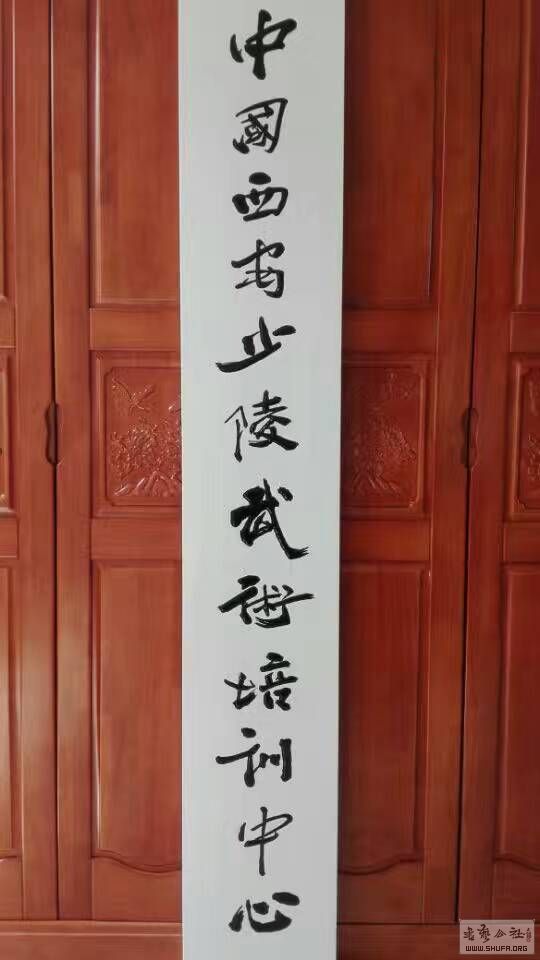 中國西安止陵武術培训中心
書藝公社
WWW.SHUFA.ORG